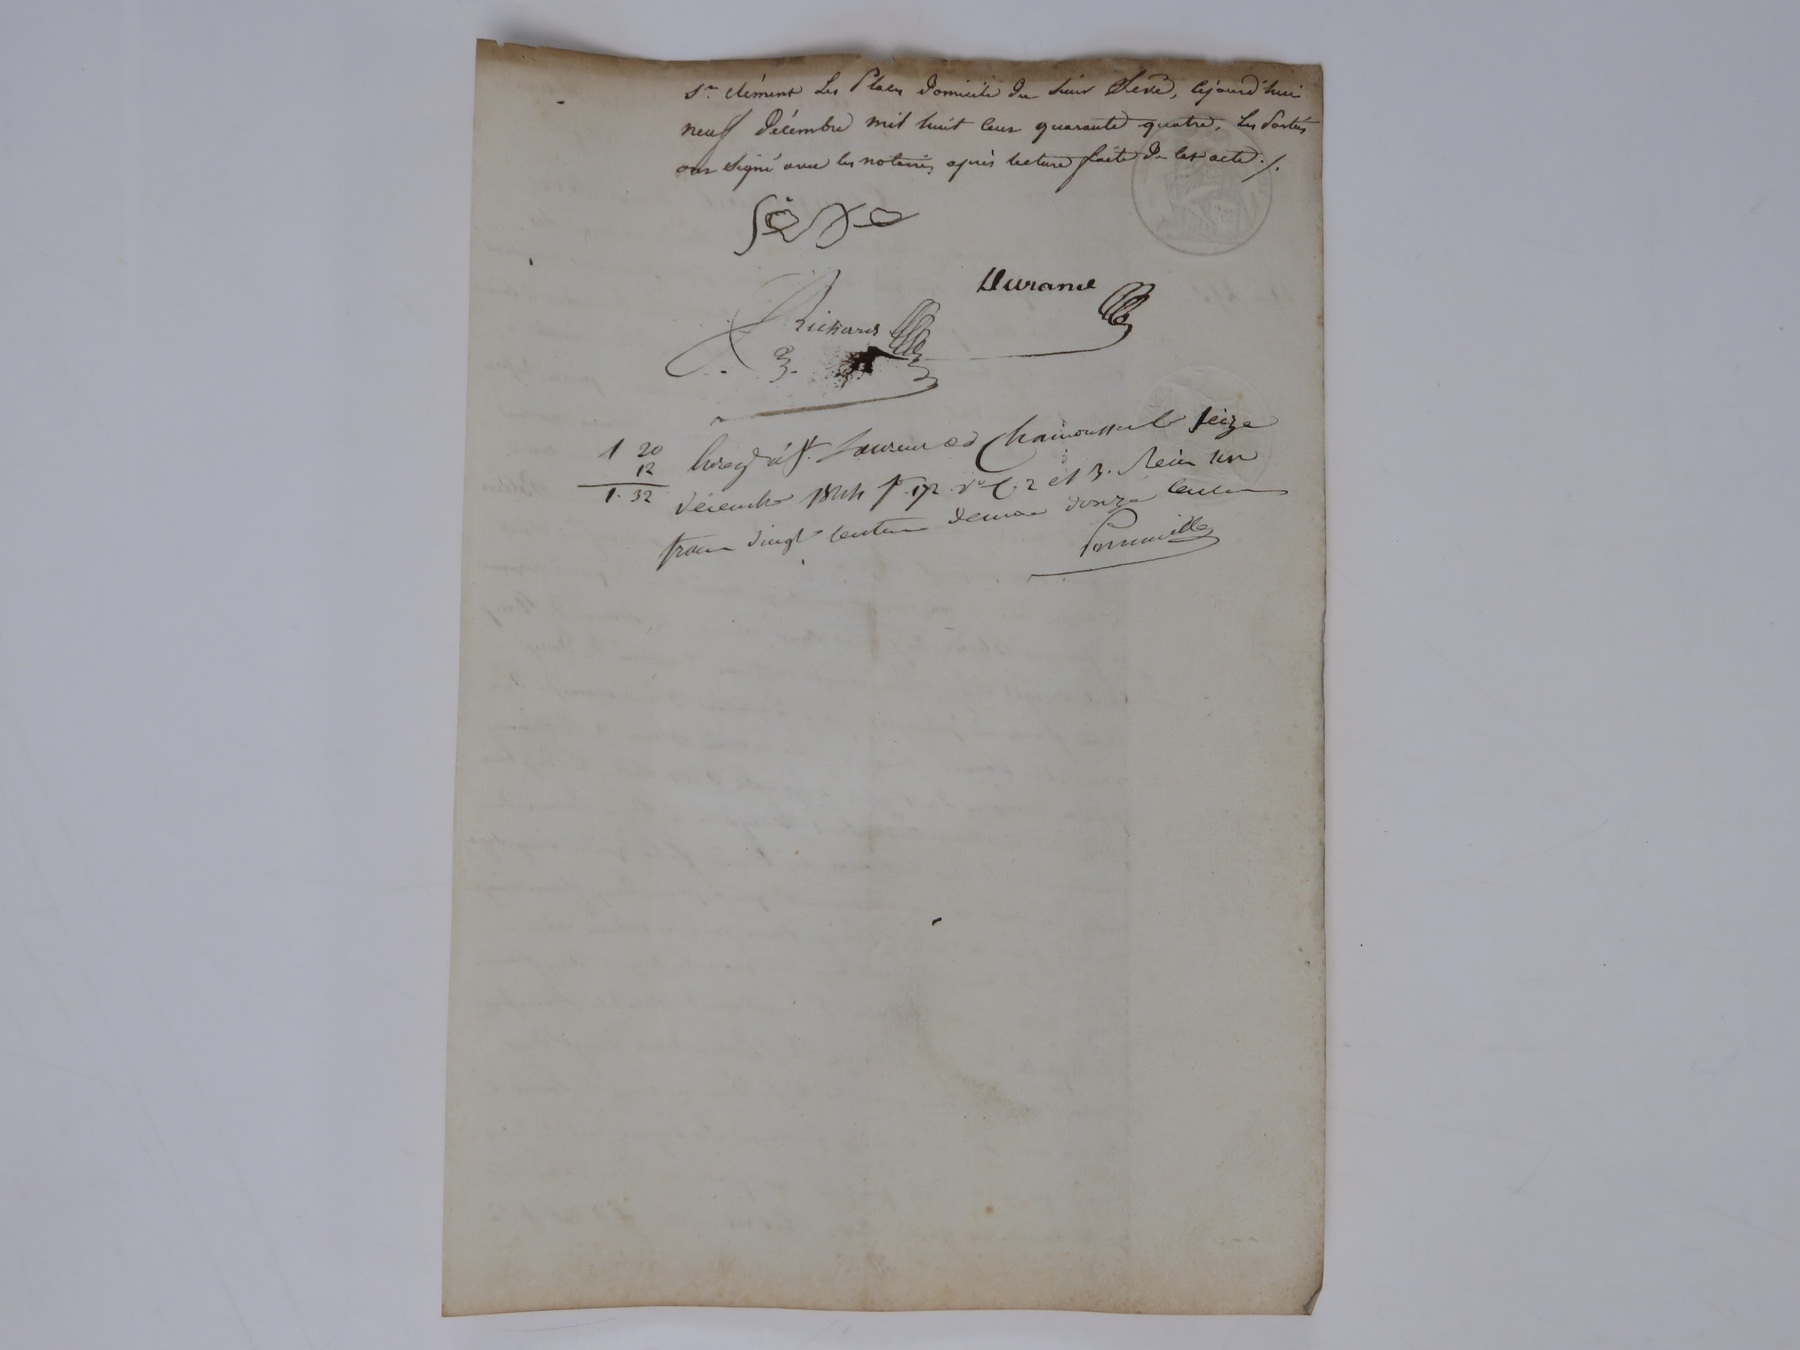 St. Clément Les Places domicile du sieur Seve, cejourd'hui
neuf décembre mil huit cent quarante quatre, les parties
ont signé avec les notaires après lecture faite de cet acte./.
Seve
Durand
Richard
1 20
12
1. 32
Enregé à St. Laurent de Chamousset le seize
décembre 1844 f° 172 v° C. 2 et 3. Reçu un
franc vingt centimes décime douze centimes